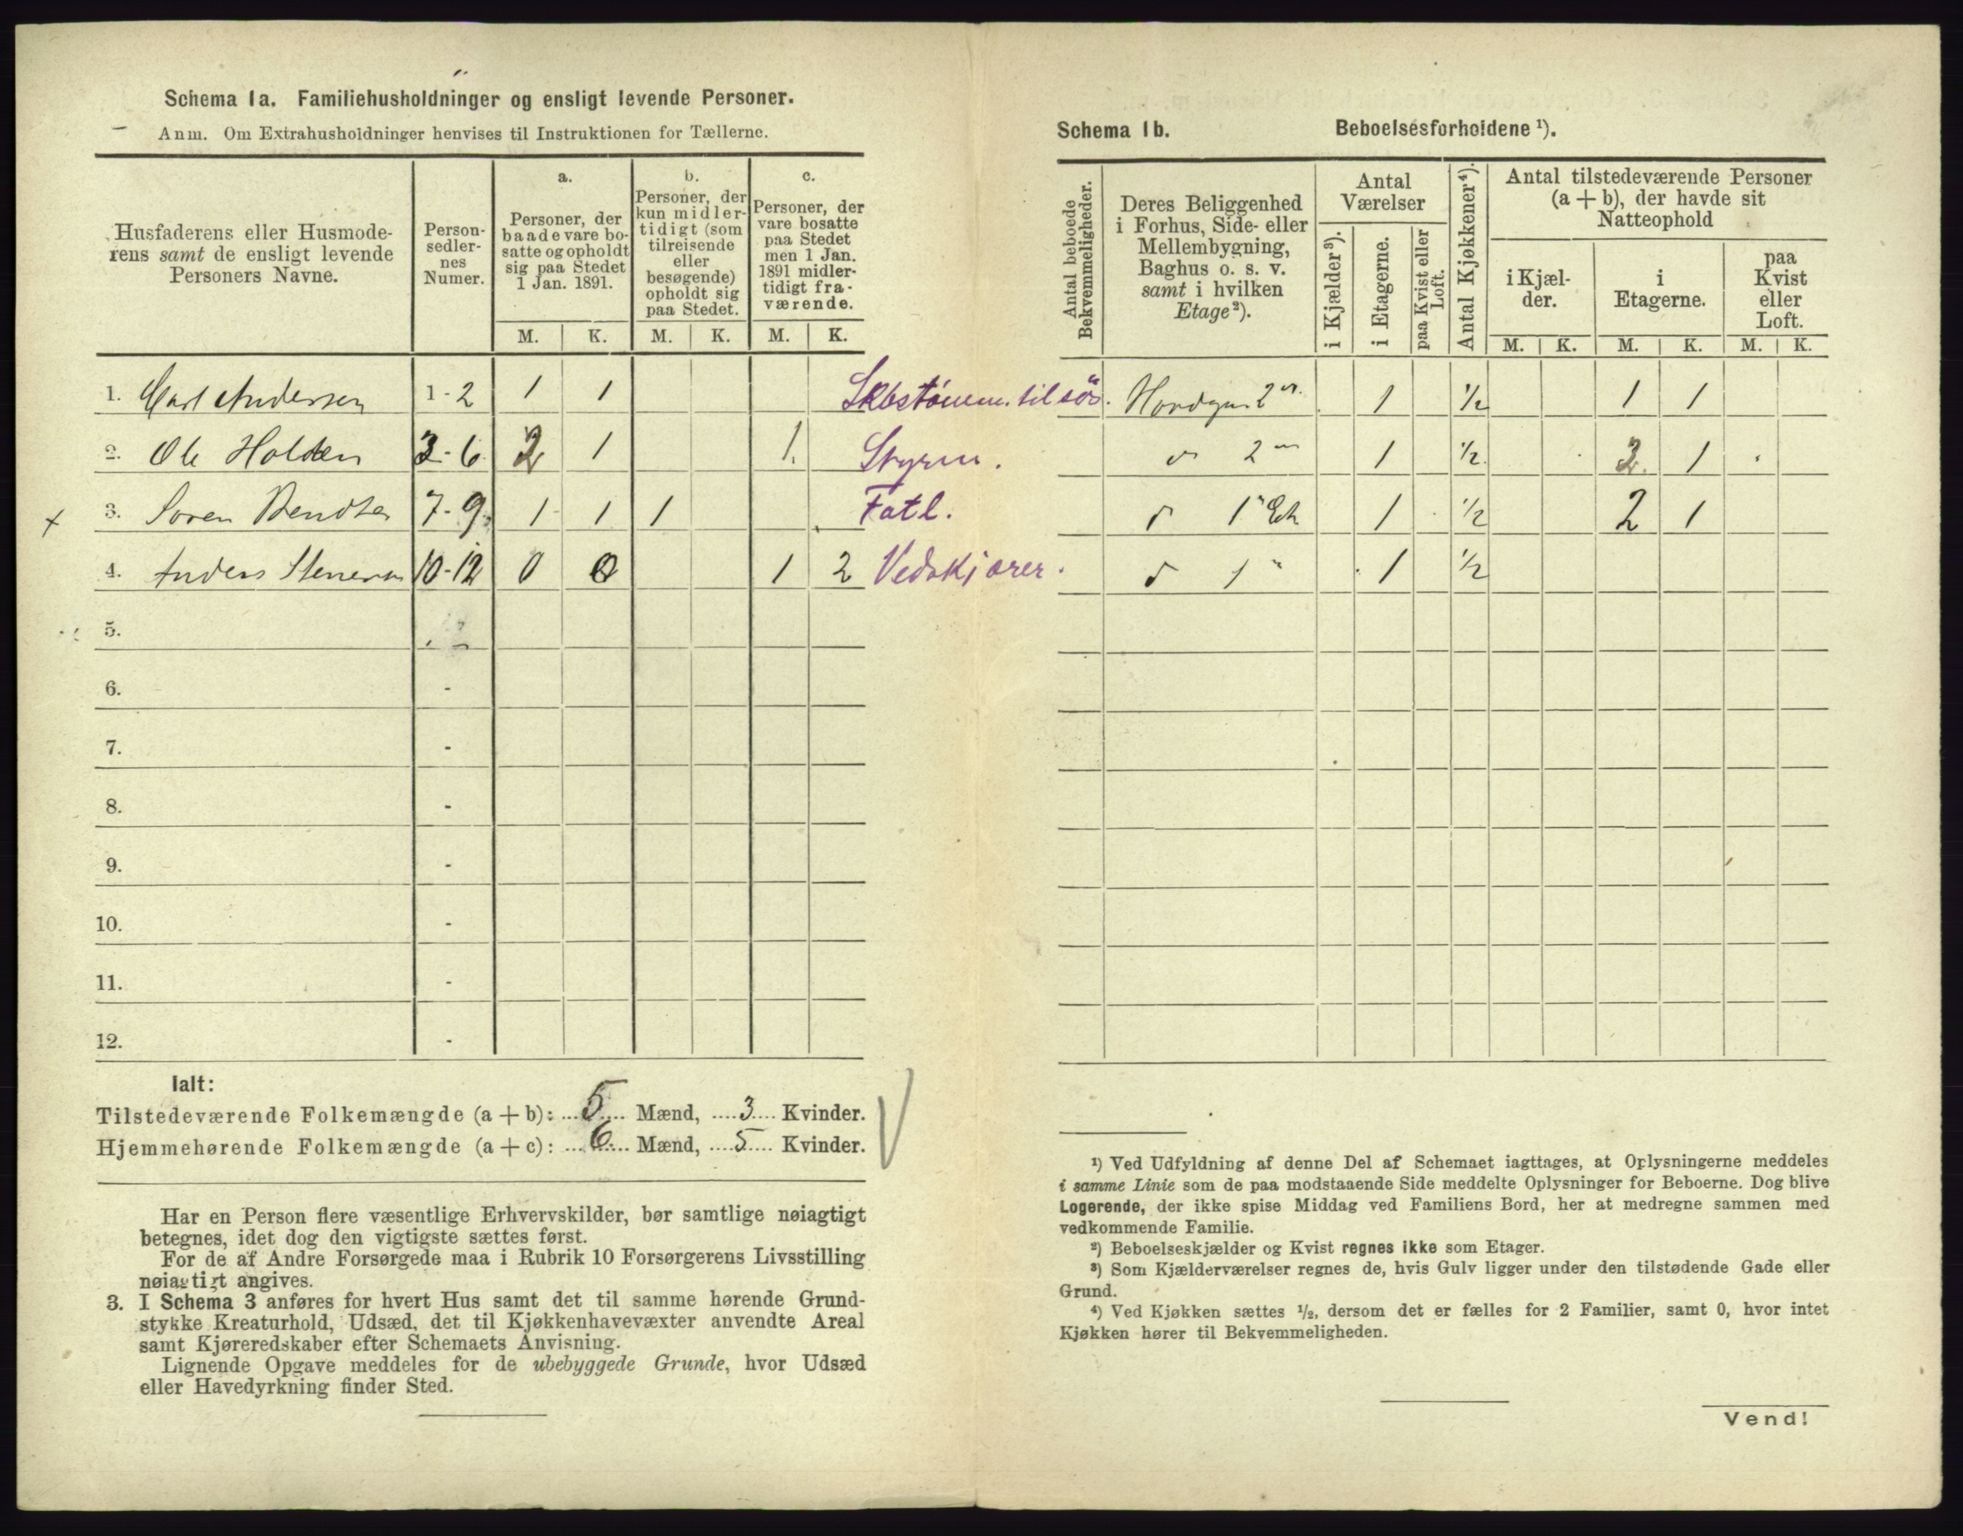 Schema 1a. Familiehusholdninger og ensligt levende Personer.
Anm. Om Extrahusholdninger henvises til Instruktionen for Tællerne.
Husfaderens eller Husmoderens samt de ensligt levende Personers Navne.
Person-sedlernes Numer.
a.
Personer, der baade vare bosatte og opholdt sig paa Stedet 1 Jan. 1891.
b.
Personer, der kun midlertidigt (som tilreisende eller besøgende) opholdt sig paa Stedet.
c.
Personer, der vare bosatte paa Stedet men 1 Jan. 1891 midlertidigt fraværende.
M. K. M. K. M. K.
1. Carl Andersen 1-2 1 1
2. Ole Holden 3-6 2 1 1 Styrm.
3. Soren Bendtsen 7-9 1 1 1 Fatl.
4. Anders 10-12 0 0 1 2 Vedskjærer.
5.
6. -
7. -
8. -
9. -
10. -
11. -
12. -
Ialt:
Tilstedeværende Folkemængde (a+b): 5 Mænd, 3 Kvinder.
Hjemmehørende Folkemængde (a+c): 6 Mænd, 5 Kvinder.
Har en Person flere væsentlige Erhvervskilder, bør samtlige nøiagtigt
betegnes, idet dog den vigtigste sættes først.
For de af Andre Forsørgede maa i Rubrik 10 Forsørgerens Livsstilling
nøiagtigt angives.
3. I Schema 3 anføres for hvert Hus samt det til samme hørende Grund-
stykke Kreaturhold, Udsæd, det til Kjøkkenhavevæxter anvendte Areal
samt Kjøreredskaber efter Schemaets Anvisning.
Lignende Opgave meddeles for de ubebyggede Grunde, hvor Udsæd
eller Havedyrkning finder Sted.
Schema 1b. Beboelsesforholdene ¹).
Antal beboede Bekvemmeligheder.
Deres Beliggenhed i Forhus, Side- eller Mellembygning, Baghus o. s. v. samt i hvilken Etage²).
Antal Værelser
i Kjælder³).
i Etagerne.
paa Kvist eller Loft.
Antal Kjøkkener⁴).
Antal tilstedeværende Personer (a + b), der havde sit Natteophold
i Kjæl-der.
i Etagerne.
paa Kvist eller Loft.
M. K. M. K. M. K.
2 1 ½ 1 1
2 1 ½ 3 1
1 1 ½ 2 1
1 1 ½
¹) Ved Udfyldning af denne Del af Schemaet iagttages, at Oplysningerne meddeles
i samme Linie som de paa modstaaende Side meddelte Oplysninger for Beboerne. Dog blive
Logerende, der ikke spise Middag ved Familiens Bord, her at medregne sammen med
vedkommende Familie.
²) Beboelseskjælder og Kvist regnes ikke som Etager.
³) Som Kjælderværelser regnes de, hvis Gulv ligger under den tilstødende Gade eller
Grund.
⁴) Ved Kjøkken sættes ½, dersom det er fælles for 2 Familier, samt 0, hvor intet
Kjøkken hører til Bekvemmeligheden.
Vend!